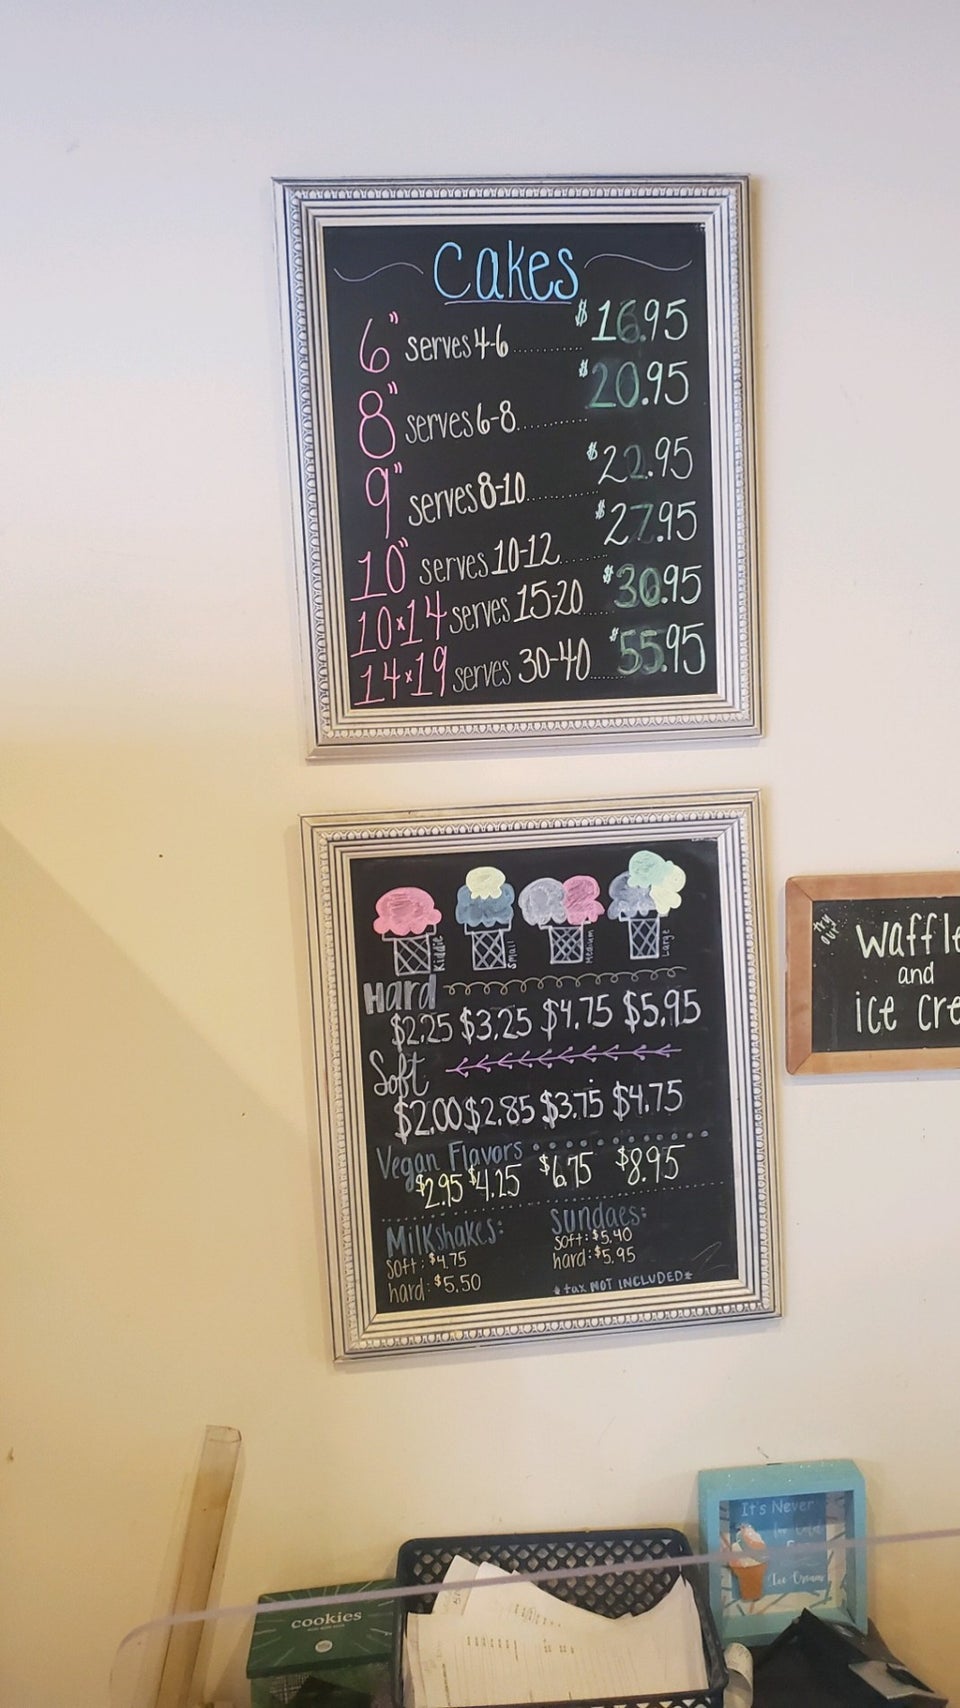 Cakes
6" serves 4-6 .......... $16.95
8" serves 6-8 .......... $20.95
9" serves 8-10 .......... $22.95
10" serves 10-12 ....... $27.95
10x14 serves 15-20 ..... $30.95
14x19 serves 30-40 ...... $55.95
Kiddie Small Medium Large
Hard
$2.25 $3.25 $4.75 $5.95
Soft
$2.00 $2.85 $3.75 $4.75
Vegan Flavors
$2.95 $4.25 $6.75 $8.95
Milkshakes:
soft: $4.75
hard: $5.50
Sundaes:
soft: $5.40
hard: $5.95
*tax NOT INCLUDED*
try our
waffle
and
ice cre
cookies
It's Never
Ice Cream